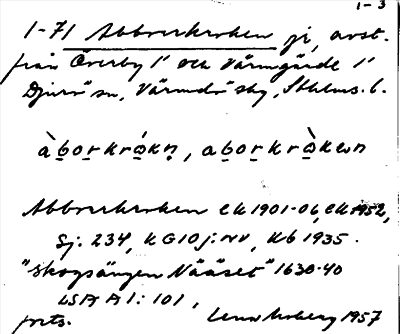 1-3
1-71 Abborrkroken jr, avst.
från Överby 1⁴ och Värmgärde 1⁴
Djurö sn, Värmdö skg, Sthlms l.
àbo̱rkro̱kn̥, abo̱rkrò̱kωn
Abborrkroken ek 1901-06, ek 1952,
Sj: 234, KG10j:NV, Kb 1935.
"Skogsängen Nääset" 1630-40
LSA A1: 101,
forts. 1957